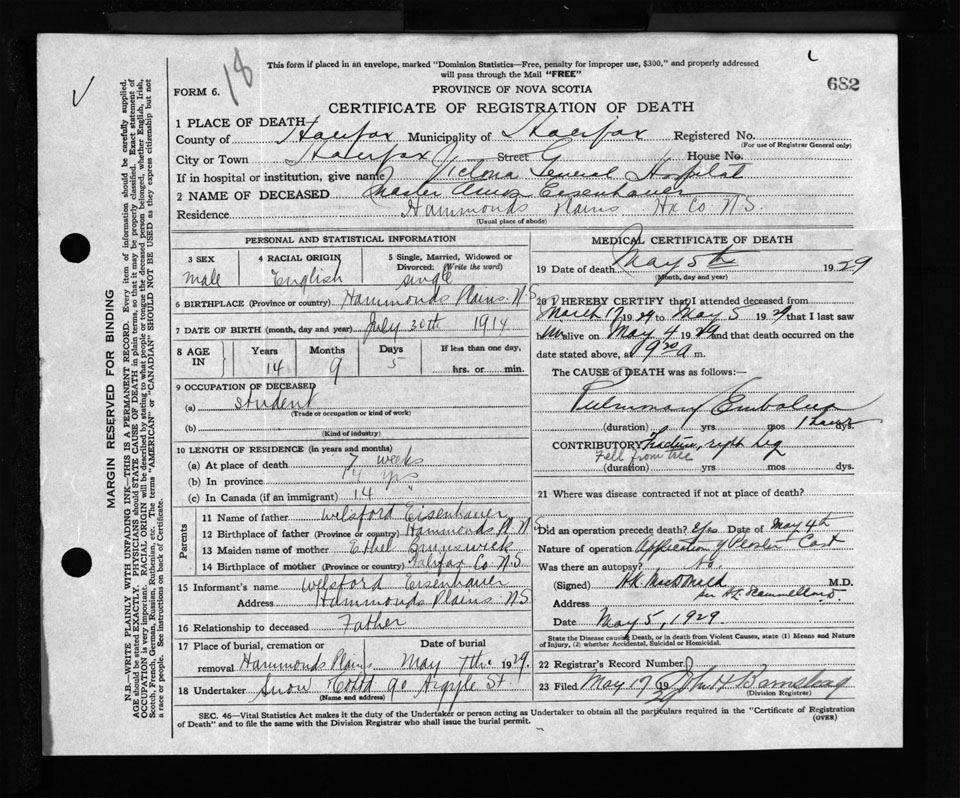 18
This form if placed in an envelope, marked "Dominion Statistics—Free, penalty for improper use, $300," and properly addressed
will pass through the Mail "FREE"
682
FORM 6.
PROVINCE OF NOVA SCOTIA
CERTIFICATE OF REGISTRATION OF DEATH
1 PLACE OF DEATH
County of Halifax Municipality of Halifax Registered No.
(For use of Registrar General only)
City or Town Halifax Street House No.
If in hospital or institution, give name) Victoria General Hospital
2 NAME OF DECEASED Master Amos Eisenhauer
Residence Hammonds Plains Hx Co. N.S.
(Usual place of abode)
PERSONAL AND STATISTICAL INFORMATION
3 SEX 4 RACIAL ORIGIN 5 Single, Married, Widowed or
Divorced: (Write the word)
Male English Single
6 BIRTHPLACE (Province or country) Hammonds Plains N.S.
7 DATE OF BIRTH (month, day and year) July 30th 1914
8 AGE IN Years Months Days If less than one day,
14 9 5 hrs. or min.
9 OCCUPATION OF DECEASED
(a) Student
(Trade or occupation or kind of work)
(b)
(Kind of industry)
10 LENGTH OF RESIDENCE (in years and months)
(a) At place of death 7 weeks
(b) In province 14 yrs
(c) In Canada (if an immigrant) 14 "
Parents
11 Name of father Wilsford Eisenhauer
12 Birthplace of father (Province or country) Hammonds P. N.S.
13 Maiden name of mother Ethel Brunswick
14 Birthplace of mother (Province or country) Halifax Co N.S.
15 Informant's name Wilsford Eisenhauer
Address Hammonds Plains N.S.
16 Relationship to deceased Father
17 Place of burial, cremation or Date of burial
removal Hammonds Plains May 7th 1929
18 Undertaker Snow Co Ltd 90 Argyle St.
(Name and address)
MEDICAL CERTIFICATE OF DEATH
19 Date of death May 5th 1929
(Month, day and year)
20 I HEREBY CERTIFY that I attended deceased from
March 19 1929 to May 5 1929 that I last saw
h im alive on May 4 1929 and that death occurred on
date stated above, at 9 30 a m.
The CAUSE of DEATH was as follows:—
Pulmonary Embolus
(duration) yrs mos 1 hour
CONTRIBUTORY Fracture, right leg
Fell from tree
(duration) yrs. mos. dys.
21 Where was disease contracted if not at place of death?
Did an operation precede death? Yes Date of May 4th
Nature of operation Application of Plaster Cast
Was there an autopsy? No.
(Signed) H.K. MacDonald M.D.
Address
Date May 5, 1929.
State the Disease causing Death, or in death from Violent Causes, state (1) Means and Nature
of Injury, (2) whether Accidental, Suicidal or Homicidal.
22 Registrar's Record Number
23 Filed May 17 1929 John H Barnstead
(Division Registrar)
SEC. 46—Vital Statistics Act makes it the duty of the Undertaker or person acting as Undertaker to obtain all the particulars required in the "Certificate of Registration
of Death" and to file the same with the Division Registrar who shall issue the burial permit. (OVER)
MARGIN RESERVED FOR BINDING
N.B.—WRITE PLAINLY WITH UNFADING INK—THIS IS A PERMANENT RECORD. Every item of information should be carefully supplied.
AGE should be stated EXACTLY. PHYSICIANS should STATE CAUSE OF DEATH in plain terms, so that it may be properly classified. Exact statement of
OCCUPATION is very important. RACIAL ORIGIN will be described by stating to what people or tongue the deceased person belonged, whether English, Irish,
Scotch, French, German, Russian, Ruthenian, etc. The terms "AMERICAN" or "CANADIAN" SHOULD NOT BE USED as they express citizenship but not
a race or people. See instructions on back of Certificate.